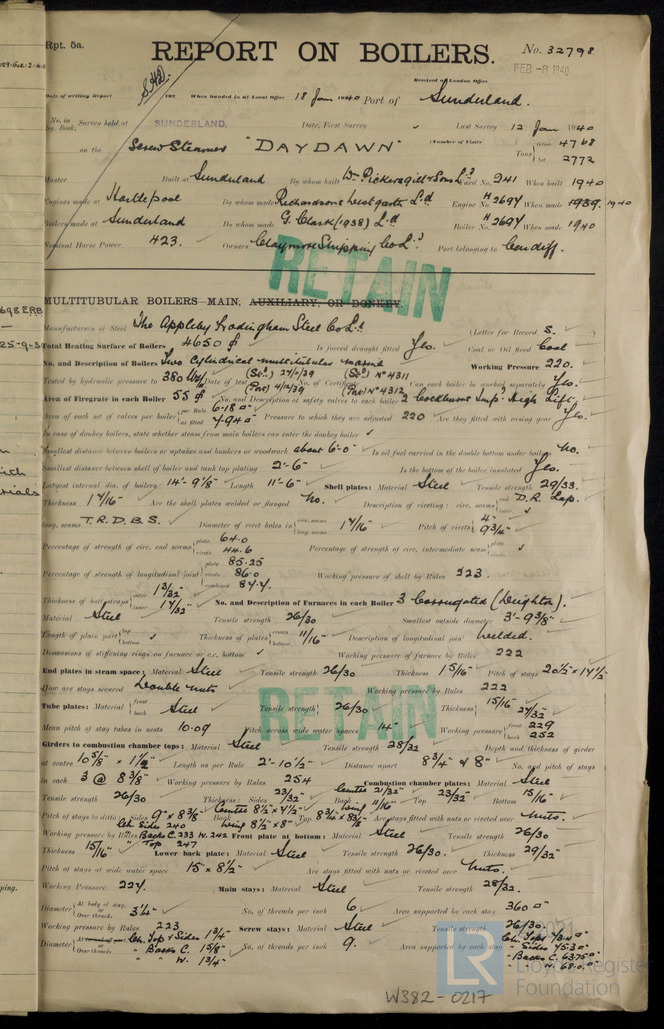 Rpt. 5a.
REPORT ON BOILERS.
No. 32798
Received at London Office
FEB -8 1940
Date of writing Report 19 When handed in at Local Office 18 Jan 1940 Port of Sunderland.
No. in Reg. Book. Survey held at SUNDERLAND. Date, First Survey ✓ Last Survey 12 Jan 1940
(Number of Visits
on the Screw Steamer "DAYDAWN" Tons Gross 4768 Net 2772
Master Built at Sunderland By whom built Wm Pickersgill & Sons Ld Yard No. 241 When built 1940
Engines made at Hartlepool By whom made Richardsons Westgarth Ld Engine No. H 2697 When made 1939-1940
Boilers made at Sunderland By whom made G. Clark (1938) Ld Boiler No. H 2697 When made 1940
Nominal Horse Power 423. Owners Claymore Shipping Co Ld Port belonging to Cardiff.
RETAIN
MULTITUBULAR BOILERS—MAIN, AUXILIARY, OR DONKEY.
Manufacturers of Steel The Appleby Frodingham Steel Co Ld (Letter for Record S. )
Total Heating Surface of Boilers 4650 Is forced draught fitted Yes. Coal or Oil fired Coal
No. and Description of Boilers Two Cylindrical multitubular marine Working Pressure 220.
Tested by hydraulic pressure to 380 lbs Date of test (Stb.) 27/11/39 (Port) 4/12/39 No. of Certificate (Stb.) No 4311 (Port) No 4312 Can each boiler be worked separately Yes.
Area of Firegrate in each Boiler 55 No. and Description of safety valves to each boiler 2 Cockburns Imp. High Lift.
Area of each set of valves per boiler per Rule 6.18 as fitted 7.940 Pressure to which they are adjusted 220 Are they fitted with easing gear Yes.
In case of donkey boilers, state whether steam from main boilers can enter the donkey boiler ✓
Smallest distance between boilers or uptakes and bunkers or woodwork about 6'-0" Is oil fuel carried in the double bottom under boilers No.
Smallest distance between shell of boiler and tank top plating 2'-6" Is the bottom of the boiler insulated Yes.
Largest internal dia. of boilers 14'-9 1/8" Length 11'-6" Shell plates: Material Steel Tensile strength 29/33.
Thickness 1 7/16" Are the shell plates welded or flanged No. Description of riveting: circ. seams end D.R. Lap. inter. ✓
long. seams T.R.D.B.S. Diameter of rivet holes in circ. seams long. seams 1 7/16" Pitch of rivets 4" 9 3/4"
Percentage of strength of circ. end seams plate 64.0 rivets 44.6 Percentage of strength of circ. intermediate seam plate rivets ✓
Percentage of strength of longitudinal joint plate 85.25 rivets 86.0 combined 87.7. Working pressure of shell by Rules 223.
Thickness of butt straps outer 1 3/32" inner 1 7/32" No. and Description of Furnaces in each Boiler 3 Corrugated (Deighton).
Material Steel Tensile strength 26/30 Smallest outside diameter 3'-9 3/8"
Length of plain part top bottom ✓ Thickness of plates crown bottom 11/16" Description of longitudinal joint Welded.
Dimensions of stiffening rings on furnace or c.c. bottom ✓ Working pressure of furnace by Rules 222
End plates in steam space: Material Steel Tensile strength 26/30 Thickness 1 5/16" Pitch of stays 20 1/2" x 17 1/2"
How are stays secured Double nuts Working pressure by Rules 222
RETAIN
Tube plates: Material front back Steel Tensile strength 26/30 Thickness 15/16" 27/32"
Mean pitch of stay tubes in nests 10.09 Pitch across wide water spaces 14" Working pressure front 229 back 252
Girders to combustion chamber tops: Material Steel Tensile strength 28/32 Depth and thickness of girder
at centre 10 5/8" x 1 1/2" Length as per Rule 2'-10 1/2" Distance apart 8 3/4" & 8" No. and pitch of stays
in each 3 @ 8 3/8" Working pressure by Rules 254 Combustion chamber plates: Material Steel
Tensile strength 26/30 Thickness: Sides 23/32" Back Centre 21/32" Wing 11/16" Top 23/32" Bottom 15/16"
Pitch of stays to ditto: Sides 9" x 8 3/8" Back Centre 8 1/2" x 7 1/2" Wing 8 1/2" x 8" Top 8 3/4" x 8 3/8" Are stays fitted with nuts or riveted over Nuts.
Working pressure by Rules Ch. Sides 240 Backs C. 233 W. 242 Top 247 Front plate at bottom: Material Steel Tensile strength 26/30
Thickness 15/16" Lower back plate: Material Steel Tensile strength 26/30. Thickness 29/32"
Pitch of stays at wide water space 15" x 8 1/2" Are stays fitted with nuts or riveted over Nuts.
Working Pressure 227. Main stays: Material Steel Tensile strength 28/32.
Diameter At body of stay, or Over threads 3 1/4" No. of threads per inch 6 Area supported by each stay 360
Working pressure by Rules 223 Screw stays: Material Steel Tensile strength 26/30.
Diameter At turned off part, or Over threads Ch. Top & Sides 1 3/4" No. of threads per inch 9. Area supported by each stay Ch. Tops
" Backs C. 1 5/8" " Sides 75.30
" " W. 1 3/4" " Backs C. 63.75
W. 68.0
W382-0217
LR
Lloyd's Register
Foundation